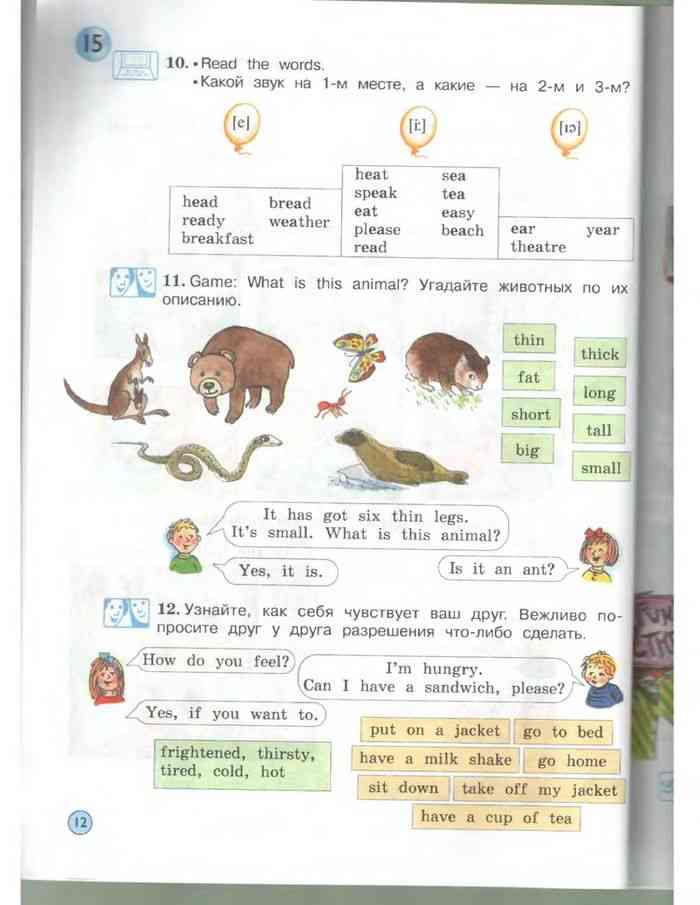 15
10. •Read the words.
•Какой звук на 1-м месте, а какие — на 2-м и 3-м?
[e]
[i:]
[ɪə]
head bread
ready weather
breakfast
heat sea
speak tea
eat easy
please beach
read
ear year
theatre
11. Game: What is this animal? Угадайте животных по их
описанию.
thin
thick
fat
long
short
tall
big
small
It has got six thin legs.
It's small. What is this animal?
Is it an ant?
Yes, it is.
12. Узнайте, как себя чувствует ваш друг. Вежливо по-
просите друг у друга разрешения что-либо сделать.
How do you feel?
I'm hungry.
Can I have a sandwich, please?
Yes, if you want to.
frightened, thirsty,
tired, cold, hot
put on a jacket
go to bed
have a milk shake
go home
sit down
take off my jacket
have a cup of tea
12